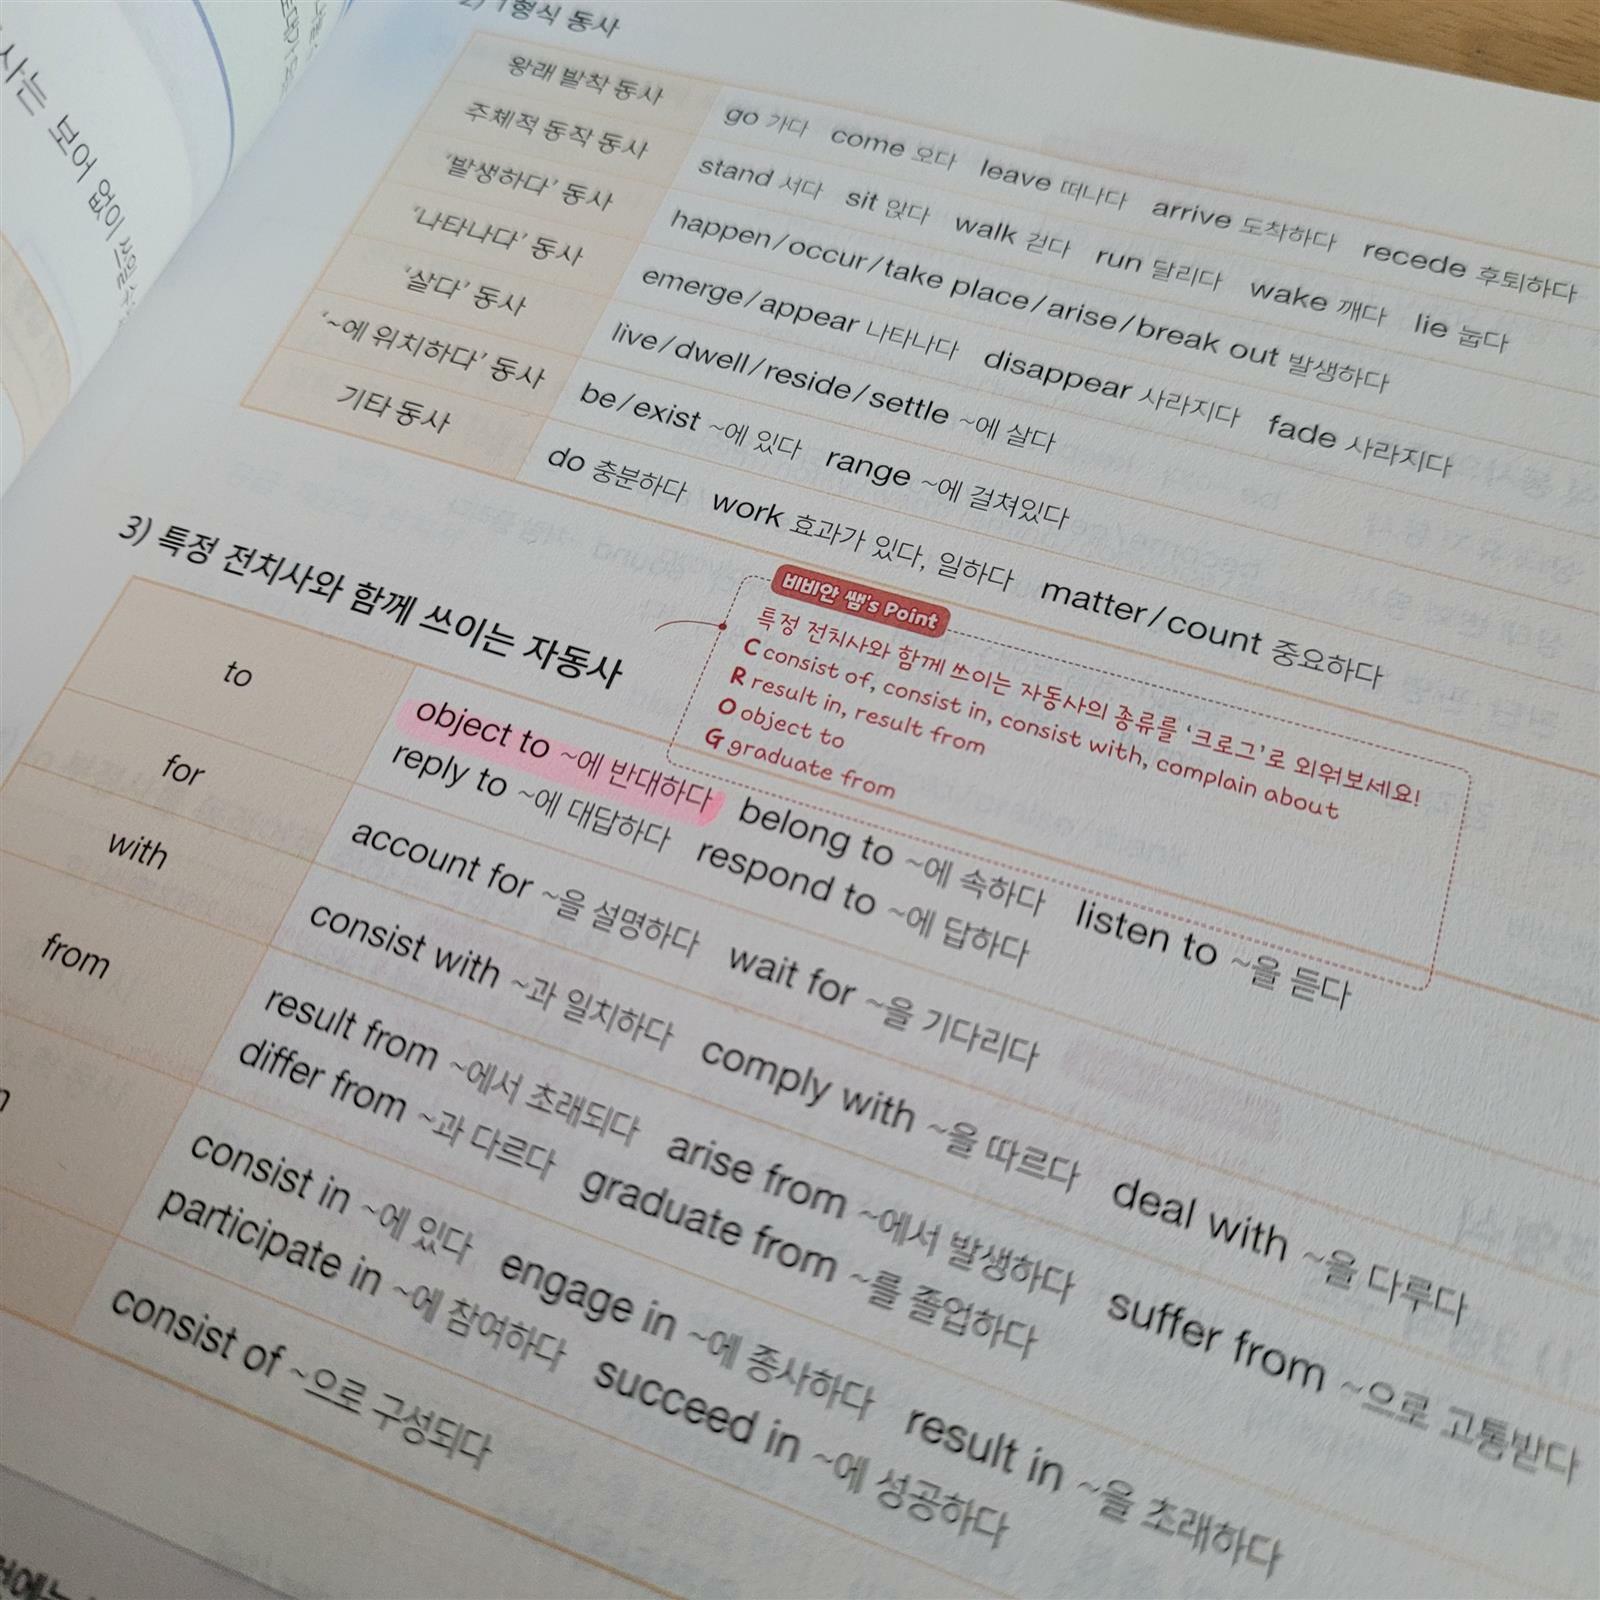 사는 보어 없이 쓰일 수
2) 1형식 동사
왕래 발착 동사 go 가다 come 오다 leave 떠나다 arrive 도착하다 recede 후퇴하다
주체적 동작 동사 stand 서다 sit 앉다 walk 걷다 run 달리다 wake 깨다 lie 눕다
'발생하다' 동사 happen/occur/take place/arise/break out 발생하다
'나타나다' 동사 emerge/appear 나타나다 disappear 사라지다 fade 사라지다
'살다' 동사 live/dwell/reside/settle ~에 살다
'~에 위치하다' 동사 be/exist ~에 있다 range ~에 걸쳐있다
기타 동사 do 충분하다 work 효과가 있다, 일하다 matter/count 중요하다
3) 특정 전치사와 함께 쓰이는 자동사
비비안 쌤's Point
특정 전치사와 함께 쓰이는 자동사의 종류를 '크로그'로 외워보세요!
C consist of, consist in, consist with, complain about
R result in, result from
O object to
G graduate from
to object to ~에 반대하다 belong to ~에 속하다 listen to ~을 듣다
reply to ~에 대답하다 respond to ~에 답하다
for account for ~을 설명하다 wait for ~을 기다리다
with consist with ~과 일치하다 comply with ~을 따르다 deal with ~을 다루다
from result from ~에서 초래되다 arise from ~에서 발생하다 suffer from ~으로 고통받다
differ from ~과 다르다 graduate from ~를 졸업하다
consist in ~에 있다 engage in ~에 종사하다 result in ~을 초래하다
participate in ~에 참여하다 succeed in ~에 성공하다
consist of ~으로 구성되다